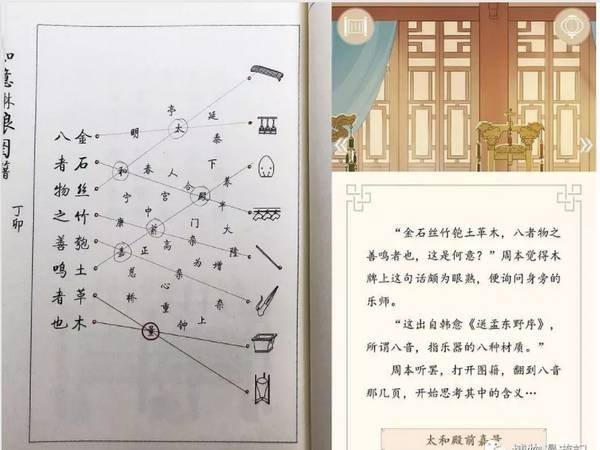 如意琳琅图籍
丁卯
金石丝竹匏土革木
八者物之善鸣者也
亭 延
明 太 泰
人 下
和 春
合 殿
宁 宫
中
康 前 门 大
嘉 正 高 陆
为 增
心
桥 重
量 钟 上
“金石丝竹匏土革木，八者物之
善鸣者也，这是何意？”周本觉得木
牌上这句话颇为眼熟，便询问身旁的
乐师。
“这出自韩愈《送孟东野序》，
所谓八音，指乐器的八种材质。”
周本听罢，打开图籍，翻到八音
那几页，开始思考其中的含义…
太和殿前嘉量